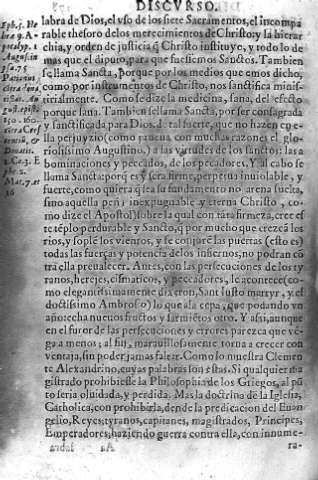 DISCVRSO.
labra de Dios, el vso de los siete Sacramentos, el incompa
rable thesoro de los merecimientos de Christo: y la hierar
chia, y orden de justicia q̃ Christo instituye, y todo lo de
mas que el diputo, para que fuessemos Sanctos. Tambien
se llama Sancta, porque por los medios que emos dicho,
como por instrumentos de Christo, nos sanctifica minis-
terialmente. Como se dize la medicina, sana, del efecto
porque sana. Tambien se llama Sancta, por ser consagrada
y sanctificada para Dios, de tal suerte, que no hazen en e-
lla perjuyzio (como prueua con muchas razones el glo-
riosissimo Augustino) a las virtudes de los sanctos: las a
bominaciones y peccados, de los peccadores. Y al cabo se
llama Sancta: porq̃ es y sera firme, perpetua inuiolable, y
fuerte, como quiera q̃ sea su fundamento no arena suelta,
sino aquella peña inexpugnable y eterna Christo, co-
mo dize el Apostol) sobre la qual con tãta firmeza, cree es
te tẽplo perdurable y Sancto, q̃ por mucho que crezcã los
rios, y soplẽ los vientos, y se conjurẽ las puertas (esto es)
todas las fuerças y potencia delos infiernos, no podran cõ
tra ella preualecer. Antes, con las persecuciones de los ty
ranos, herejes, cismaticos, y peccadores, le acontece (co-
mo elegantissimamente dixeron, Sant Iusto martyr, y el
doctissimo Ambrosio) lo que a la cepa, que podando vn
año echa nueuos fructos y sarmiẽtos otro. Y assi, aunque
en el furor de las persecuciones y errores parezca que vẽ-
ga a menos, al fin, marauillosamente torna a crecer con
ventaja, sin poder jamas faltar. Como lo muestra Clemen
te Alexandrino, cuyas palabras son estas. Si qualquier ma
gistrado prohibiesse la Philosophia de los Griegos, al pũ
to seria oluidada, y perdida. Mas la doctrina de la Iglesia,
Catholica, con prohibirla, dende la predicacion del Euan
gelio, Reyes, tyranos, capitanes, magistrados, Principes,
Emperadores, haziendo guerra contra ella, con innume-
ra-